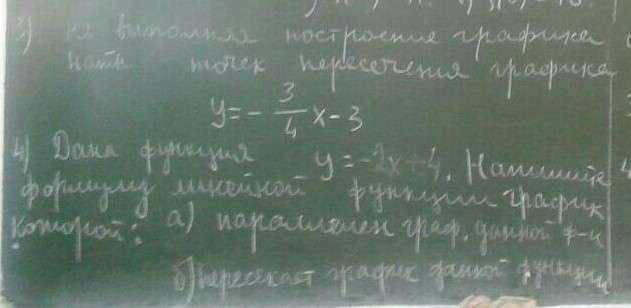 3) Не выполняя построение графика
точек пересечения графика
y = - 3/4 x - 3
4) Дана функция y = -2x + 4. Напишите
формулу линейной функции график
которой: а) параллелен граф. данной ф-и
б) пересекает график данной функции